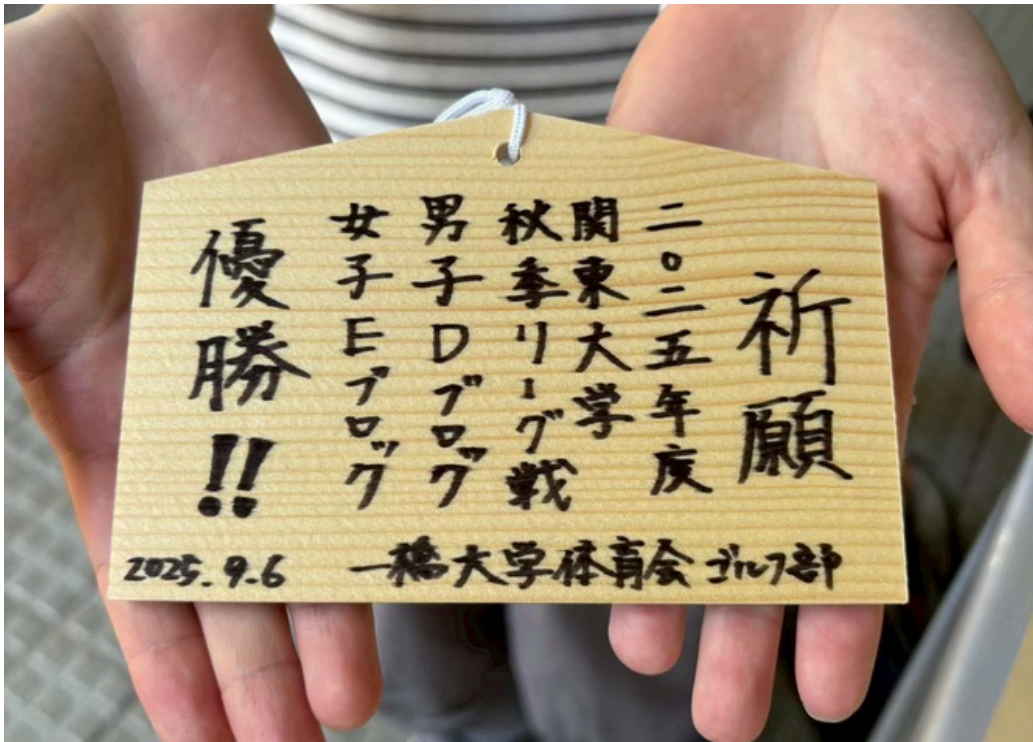 祈願
二〇二五年度
関東大学
秋季リーグ戦
男子Dブロック
女子Eブロック
優勝!!
2025.9.6
一橋大学体育会ゴルフ部